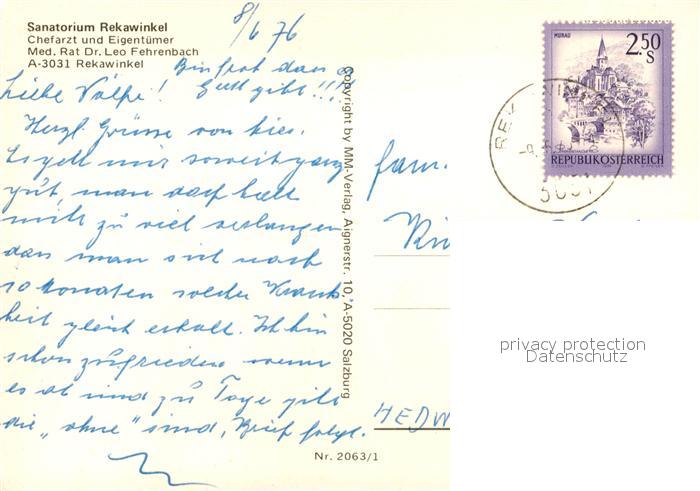 Sanatorium Rekawinkel
Chefarzt und Eigentümer
Med. Rat Dr. Leo Fehrenbach
A-3031 Rekawinkel
8/6 76
Bin froh dass
Liebe Gott gibt!!!
Herzl. Grüsse von hier.
Es geht mir soweit ganz
gut, man darf halt
nicht zu viel verlangen
dass man sich nach
10 Monaten solcher Krank
heit gleich erholt. Ich bin
schon zufrieden wenn
es ab und zu Tage gibt
die „ohne" sind, Brief folgt.
Copyright by MM-Verlag, Aignerstr. 10, A-5020 Salzburg
Nr. 2063/1
MURAU
2.50
S
REPUBLIK ÖSTERREICH
Fam.
HEDW
privacy protection
Datenschutz